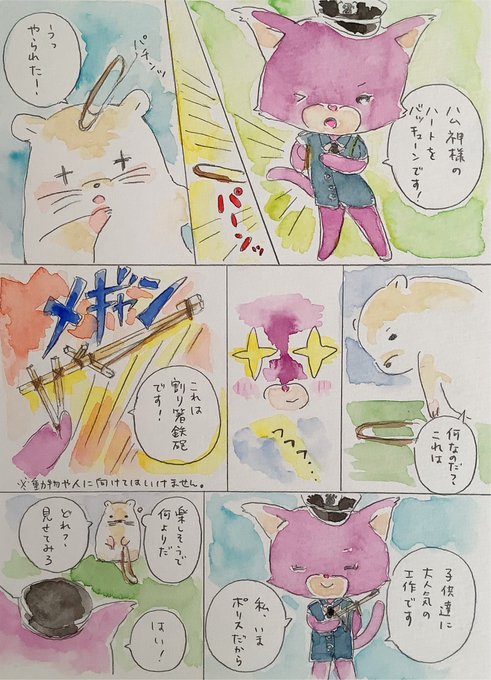 ハム神様の
ハートを
バッキューンです!
パーンッ
パチンッ
うっ
やられたー!
何なのだ?
これは
フフフ…
メギャン
これは
割り箸鉄砲
です!
※動物や人に向けてはいけません。
子供達に
大人気の
工作です
私、いま
ポリスだから
楽しそうで
何よりだ
どれ?
見せてみろ
はい!